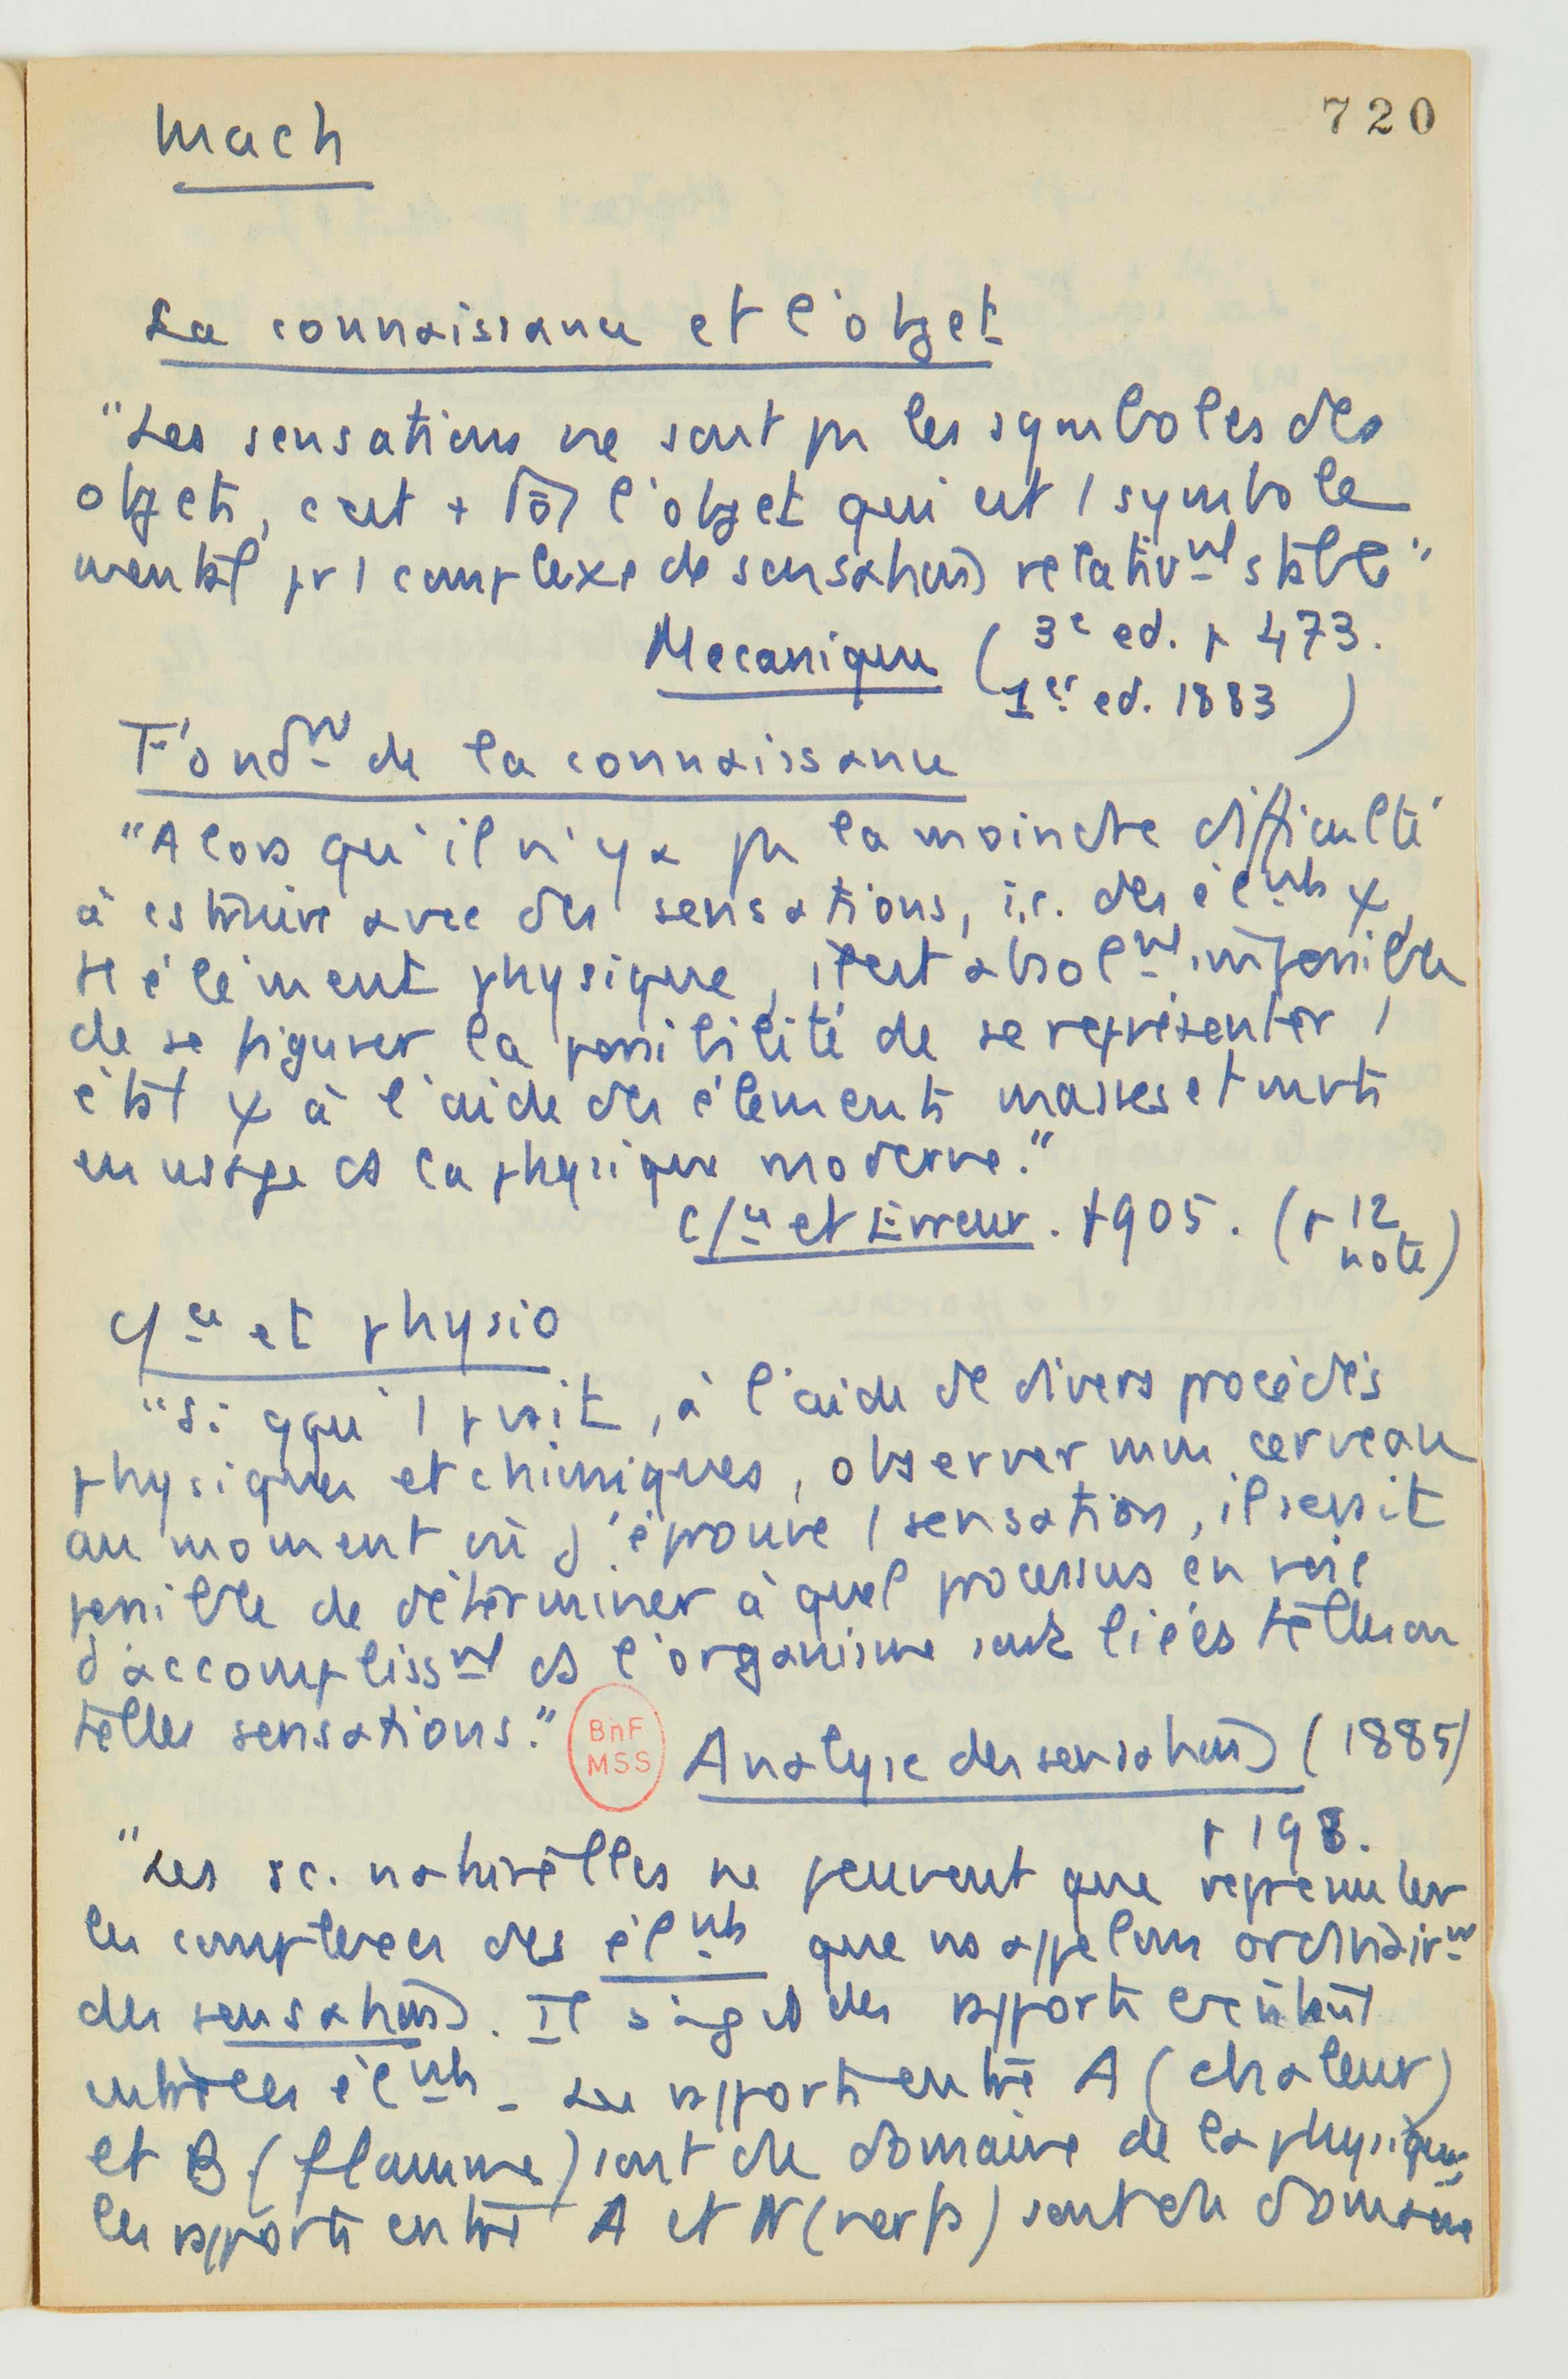 720
Mach
La connaissance et l'objet
"Les sensations ne sont pas les symboles des
objets, c'est + tôt l'objet qui est 1 symbole
mental pr 1 complexe de sensations relativnt stable"
Mecanique ( 3e ed. p 473.
1er ed. 1883 )
Fondnt de la connaissance
"Alors qu'il n'y a pas la moindre difficulté
à cstruire avec des sensations, i.e. des élnts ψ,
tt élément physique, il est absolnt impossible
de se figurer la possibilité de se représenter 1
état ψ à l'aide des éléments masses et mvts
en usage ds la physique moderne."
C/ce et Erreur. 1905. (p 12
note)
C/ce et physio
"Si qqu'1 pvait, à l'aide de divers procédés
physiques et chimiques, observer mon cerveau
au moment où j'éprouve 1 sensation, il serait
possible de déterminer à quel processus en voie
d'accomplissnt ds l'organisme sont liées telles ou
telles sensations."
BnF
MSS
Analyse des sensations (1885)
p 198.
"Les sc. naturelles ne peuvent que représenter
les complexes des élnts que ns appelons ordinairnt
des sensations. Il s'agit des rapports existant
entre ces élnts - Les rapports entre A (chaleur)
et B (flamme) sont du domaine de la physique,
les rapports entre A et N (nerfs) sont du domaine